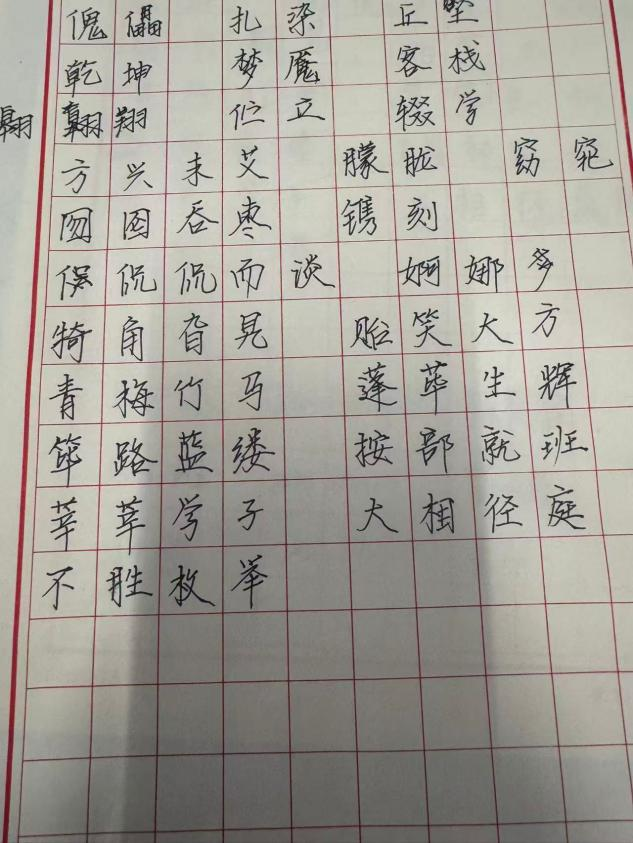 傀儡 扎染 丘
乾坤 梦魇 客栈
翱 翱翔 伫立 辍学
方兴未艾 朦胧 窈窕
囫囵吞枣 镌刻
侃侃而谈 婀娜多
犄角旮旯 贻笑大方
青梅竹马 蓬荜生辉
筚路蓝缕 按部就班
莘莘学子 大相径庭
不胜枚举